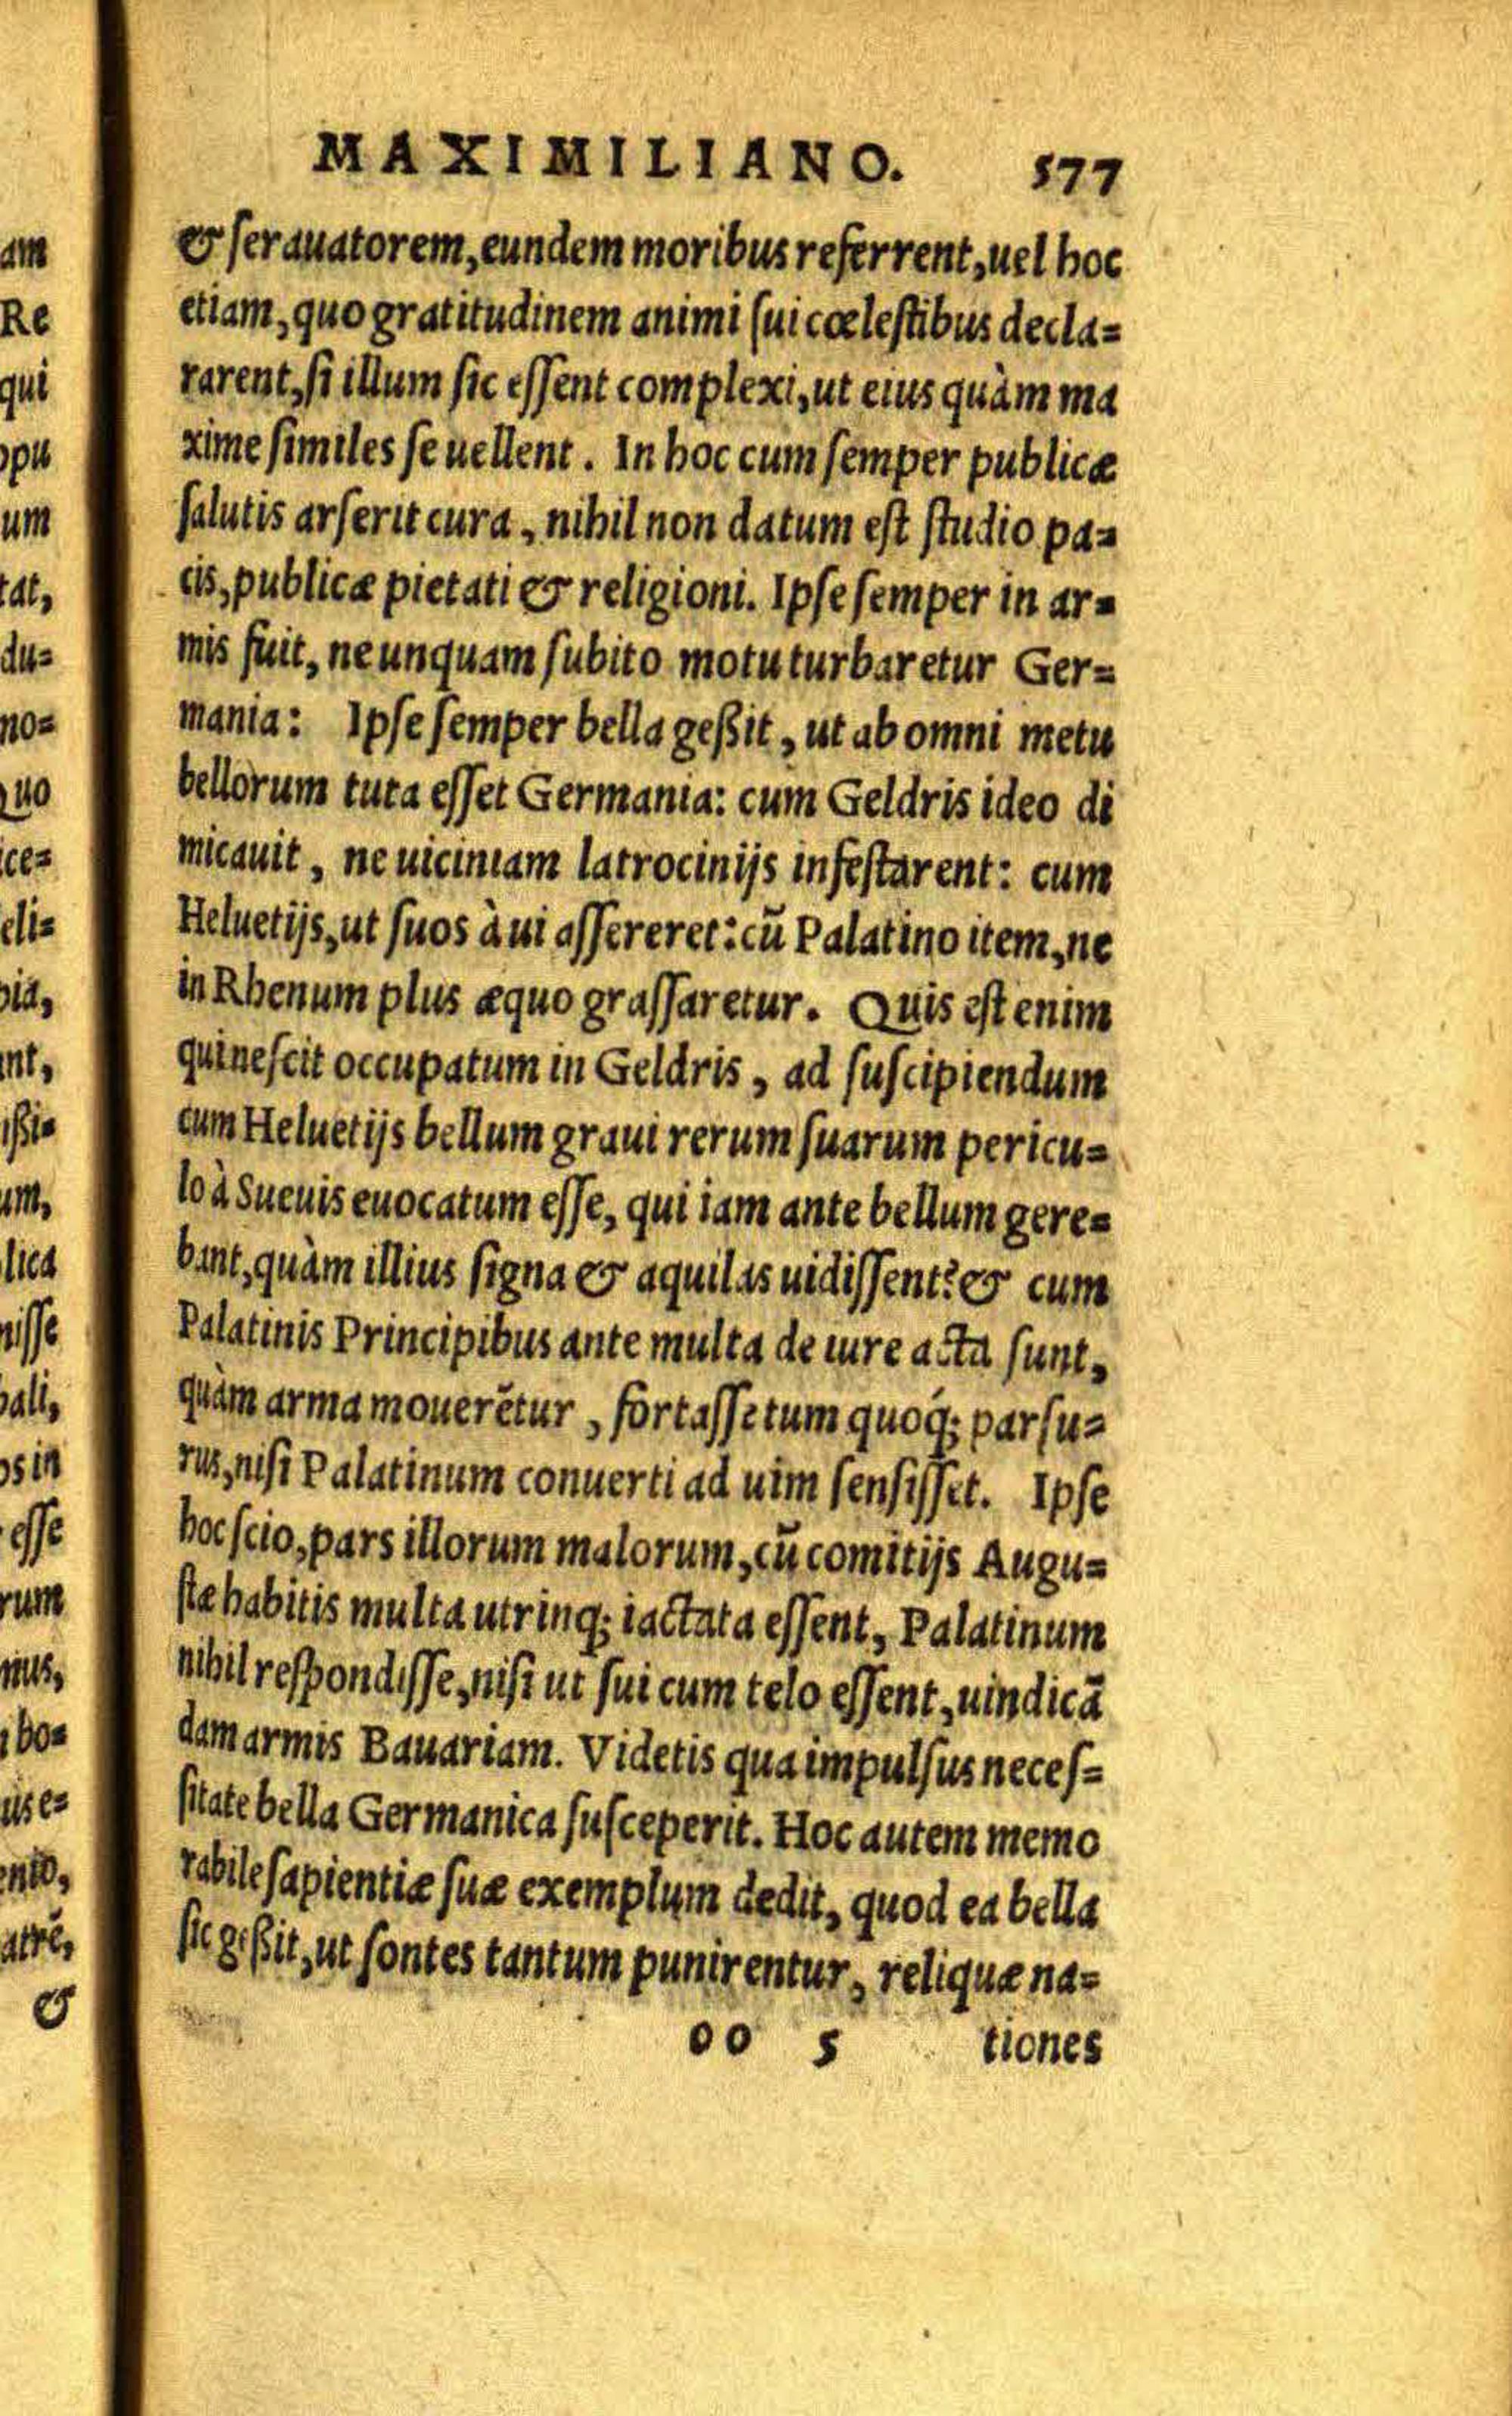 MAXIMILIANO. 577
& ſerauatorem, eundem moribus referrent, uel hoc
etiam, quo gratitudinem animi ſui cœleſtibus decla=
rarent, ſi illum ſic eſſent complexi, ut eius quàm ma
xime ſimiles ſe uellent. In hoc cum ſemper publicæ
ſalutis arſerit cura, nihil non datum eſt ſtudio pa=
cis, publicæ pietati & religioni. Ipſe ſemper in ar=
mis fuit, ne unquam ſubito motu turbaretur Ger=
mania: Ipſe ſemper bella geßit, ut ab omni metu
bellorum tuta eſſet Germania: cum Geldris ideo di
micauit, ne uiciniam latrocinijs infeſtarent: cum
Heluetijs, ut ſuos à ui aſſereret: cũ Palatino item, ne
in Rhenum plus æquo graſſaretur. Quis eſt enim
qui neſcit occupatum in Geldris, ad ſuſcipiendum
cum Heluetijs bellum graui rerum ſuarum pericu=
lo à Sueuis euocatum eſſe, qui iam ante bellum gere=
bant, quàm illius ſigna & aquilas uidiſſent? & cum
Palatinis Principibus ante multa de iure acta ſunt,
quàm arma mouerẽtur, fortaſſe tum quoq́; parſu=
rus, niſi Palatinum conuerti ad uim ſenſiſſet. Ipſe
hoc ſcio, pars illorum malorum, cũ comitijs Augu=
ſtæ habitis multa utrinq; iactata eſſent, Palatinum
nihil reſpondiſſe, niſi ut ſui cum telo eſſent, uindicã
dam armis Bauariam. Videtis qua impulſus neceſ=
ſitate bella Germanica ſuſceperit. Hoc autem memo
rabile ſapientiæ ſuæ exemplum dedit, quod ea bella
ſic geßit, ut ſontes tantum punirentur, reliquæ na=
oo 5 tiones
am
Re
qui
opu
um
tat,
du=
no=
Quo
ice=
eli=
bia,
nt,
ißi=
um,
lica
niſſe
bali,
os in
eſſe
rum
nus,
bo=
us e=
enio,
atrẽ,
&